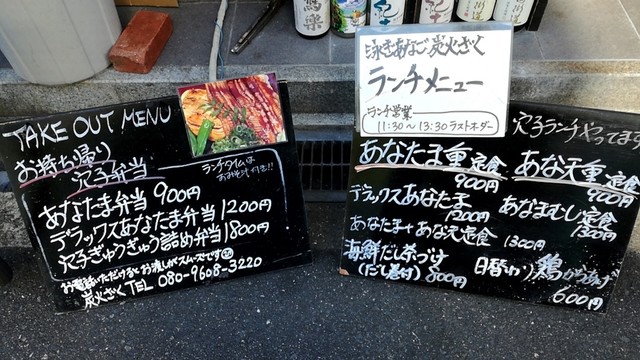 TAKE OUT MENU
お持ち帰り
穴子弁当
ランチタイムは
おみそ汁付き!!
あなたま弁当 900円
デラックスあなたま弁当 1200円
穴子ぎゅうぎゅう詰め弁当 1800円
お電話いただけるとお渡しがスムーズです
炭火ざく TEL 080-9608-3220
泳ぎあなご 炭火ざく
ランチメニュー
ランチ営業
11:30~13:30ラストオーダー
穴子ランチやってます
あなたま重定食
900円
あな天重定食
900円
デラックスあなたま
1200円
あなまむし定食
1300円
あなたま+あな天定食 1300円
海鮮だし茶づけ
(だし巻付) 800円
日替わり 鶏からあげ
600円